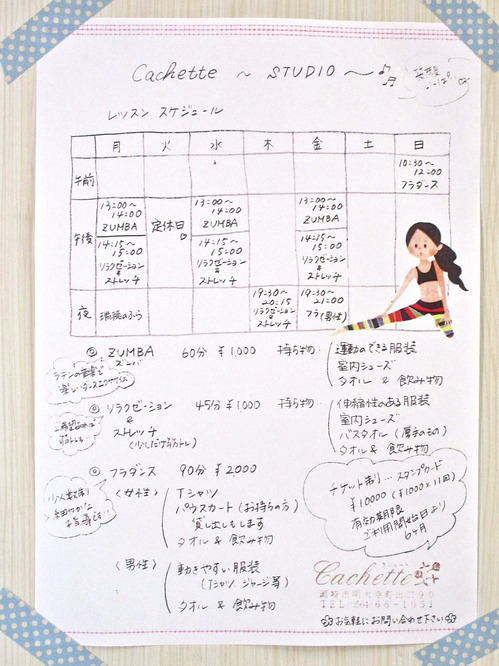 Cachette ～ STUDIO ～
笑顔
いっぱい
レッスン スケジュール
月 火 水 木 金 土 日
午前
10:30～
12:00
フラダンス
午後
13:00～
14:00
ZUMBA
14:15～
15:00
リラクゼーション
&
ストレッチ
定休日
13:00～
14:00
ZUMBA
14:15～
15:00
リラクゼーション
&
ストレッチ
13:00～
14:00
ZUMBA
14:15～
15:00
リラクゼーション
&
ストレッチ
夜
19:30～
20:15
リラクゼーション
&
ストレッチ
19:30～
21:00
フラ(男性)
◎ ZUMBA 60分 ¥1,000 持ち物…
ズンバ
運動のできる服装
室内シューズ
タオル & 飲み物
ラテンの音楽で
楽しいダンスエクササイズ
◎ リラクゼーション 45分 ¥1,000 持ち物…
&
ストレッチ
(少しだけ筋トレ)
伸縮性のある服装
室内シューズ
バスタオル (厚手のもの)
タオル & 飲み物
◎ フラダンス 90分 ¥2,000
少人数制
〈女性〉
Tシャツ
パウスカート (お持ちの方)
貸し出しもします
タオル & 飲み物
〈男性〉
動きやすい服装
(Tシャツ ジャージ等)
タオル & 飲み物
チケット制り… スタンプカード
¥10000 (¥1000×11回)
有効期限
ご利用開始日より
6ヶ月
Cachette
TEL 66-1951
お気軽にお問い合わせ下さい